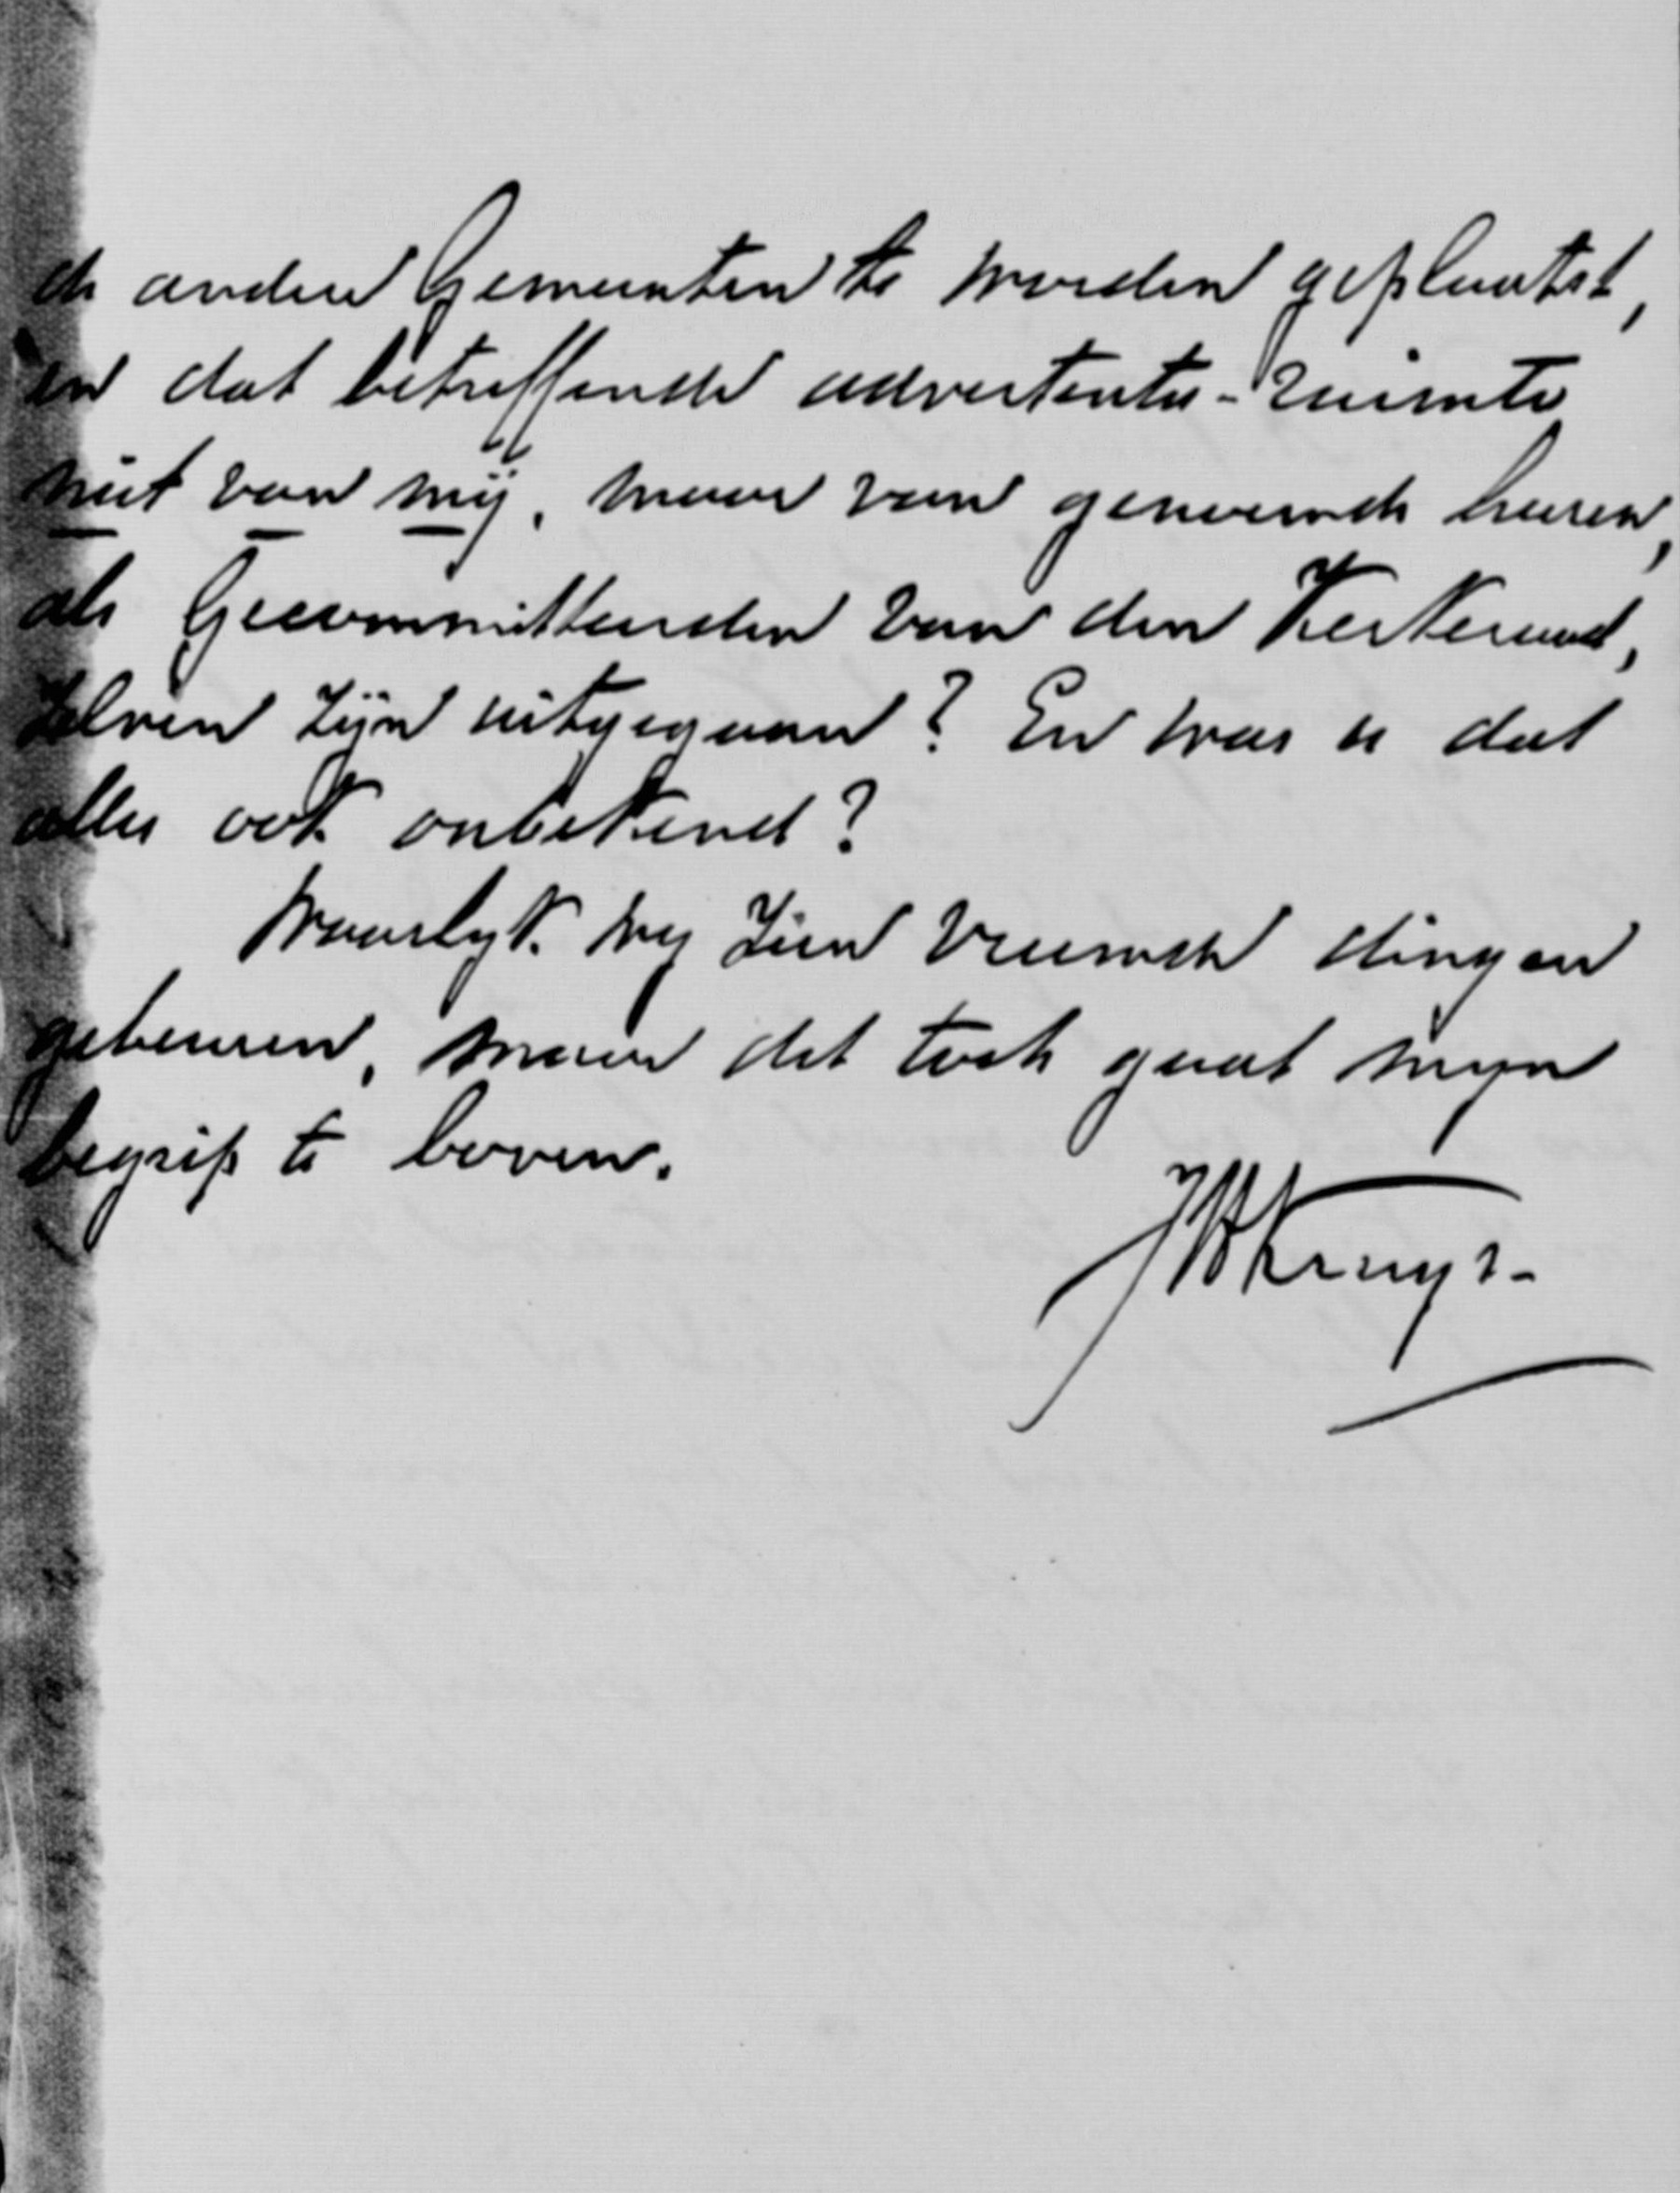 de andere Gemeenten te worden geplaatst,
en dat betreffende advertentie-ruimte
niet van mij, maar van genoemde heeren,
als Gecommitteerden van den Kerkeraad,
zelven zijn uitgegaan? En was u dat
alles ook onbekend?
Waarlyk. wy zien vreemde dingen
gebeuren, maar dit toch gaat myn
begrip te boven.